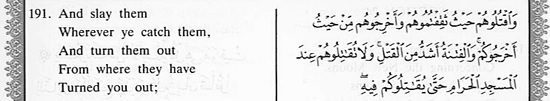 191. And slay them
Wherever ye catch them,
And turn them out
From where they have
Turned you out;
وَاقْتُلُوهُمْ حَيْثُ ثَقِفْتُمُوهُمْ وَأَخْرِجُوهُم مِّنْ حَيْثُ
أَخْرَجُوكُمْ وَالْفِتْنَةُ أَشَدُّ مِنَ الْقَتْلِ وَلَا تُقَٰتِلُوهُمْ عِندَ
الْمَسْجِدِ الْحَرَامِ حَتَّىٰ يُقَٰتِلُوكُمْ فِيهِ